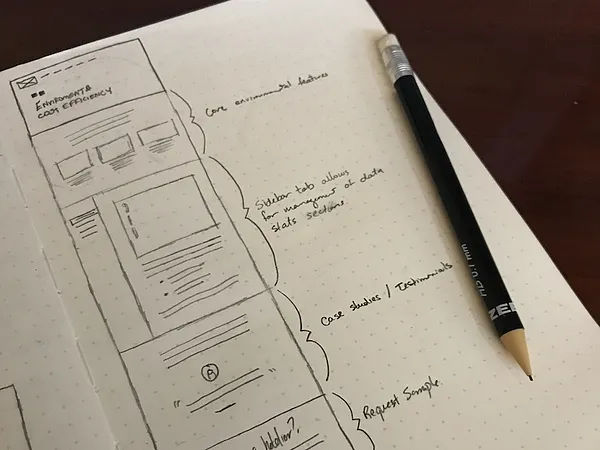 ENVIROMENT &
COST EFFICIENCY
Core environmental features
Sidebar tab allows
for management of data
stats sections.
Case studies / Testimonials
Request Sample.
ZEB
MD 0.7 mm